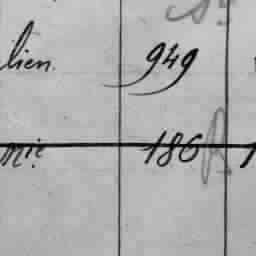 lien. 949
mie. 186